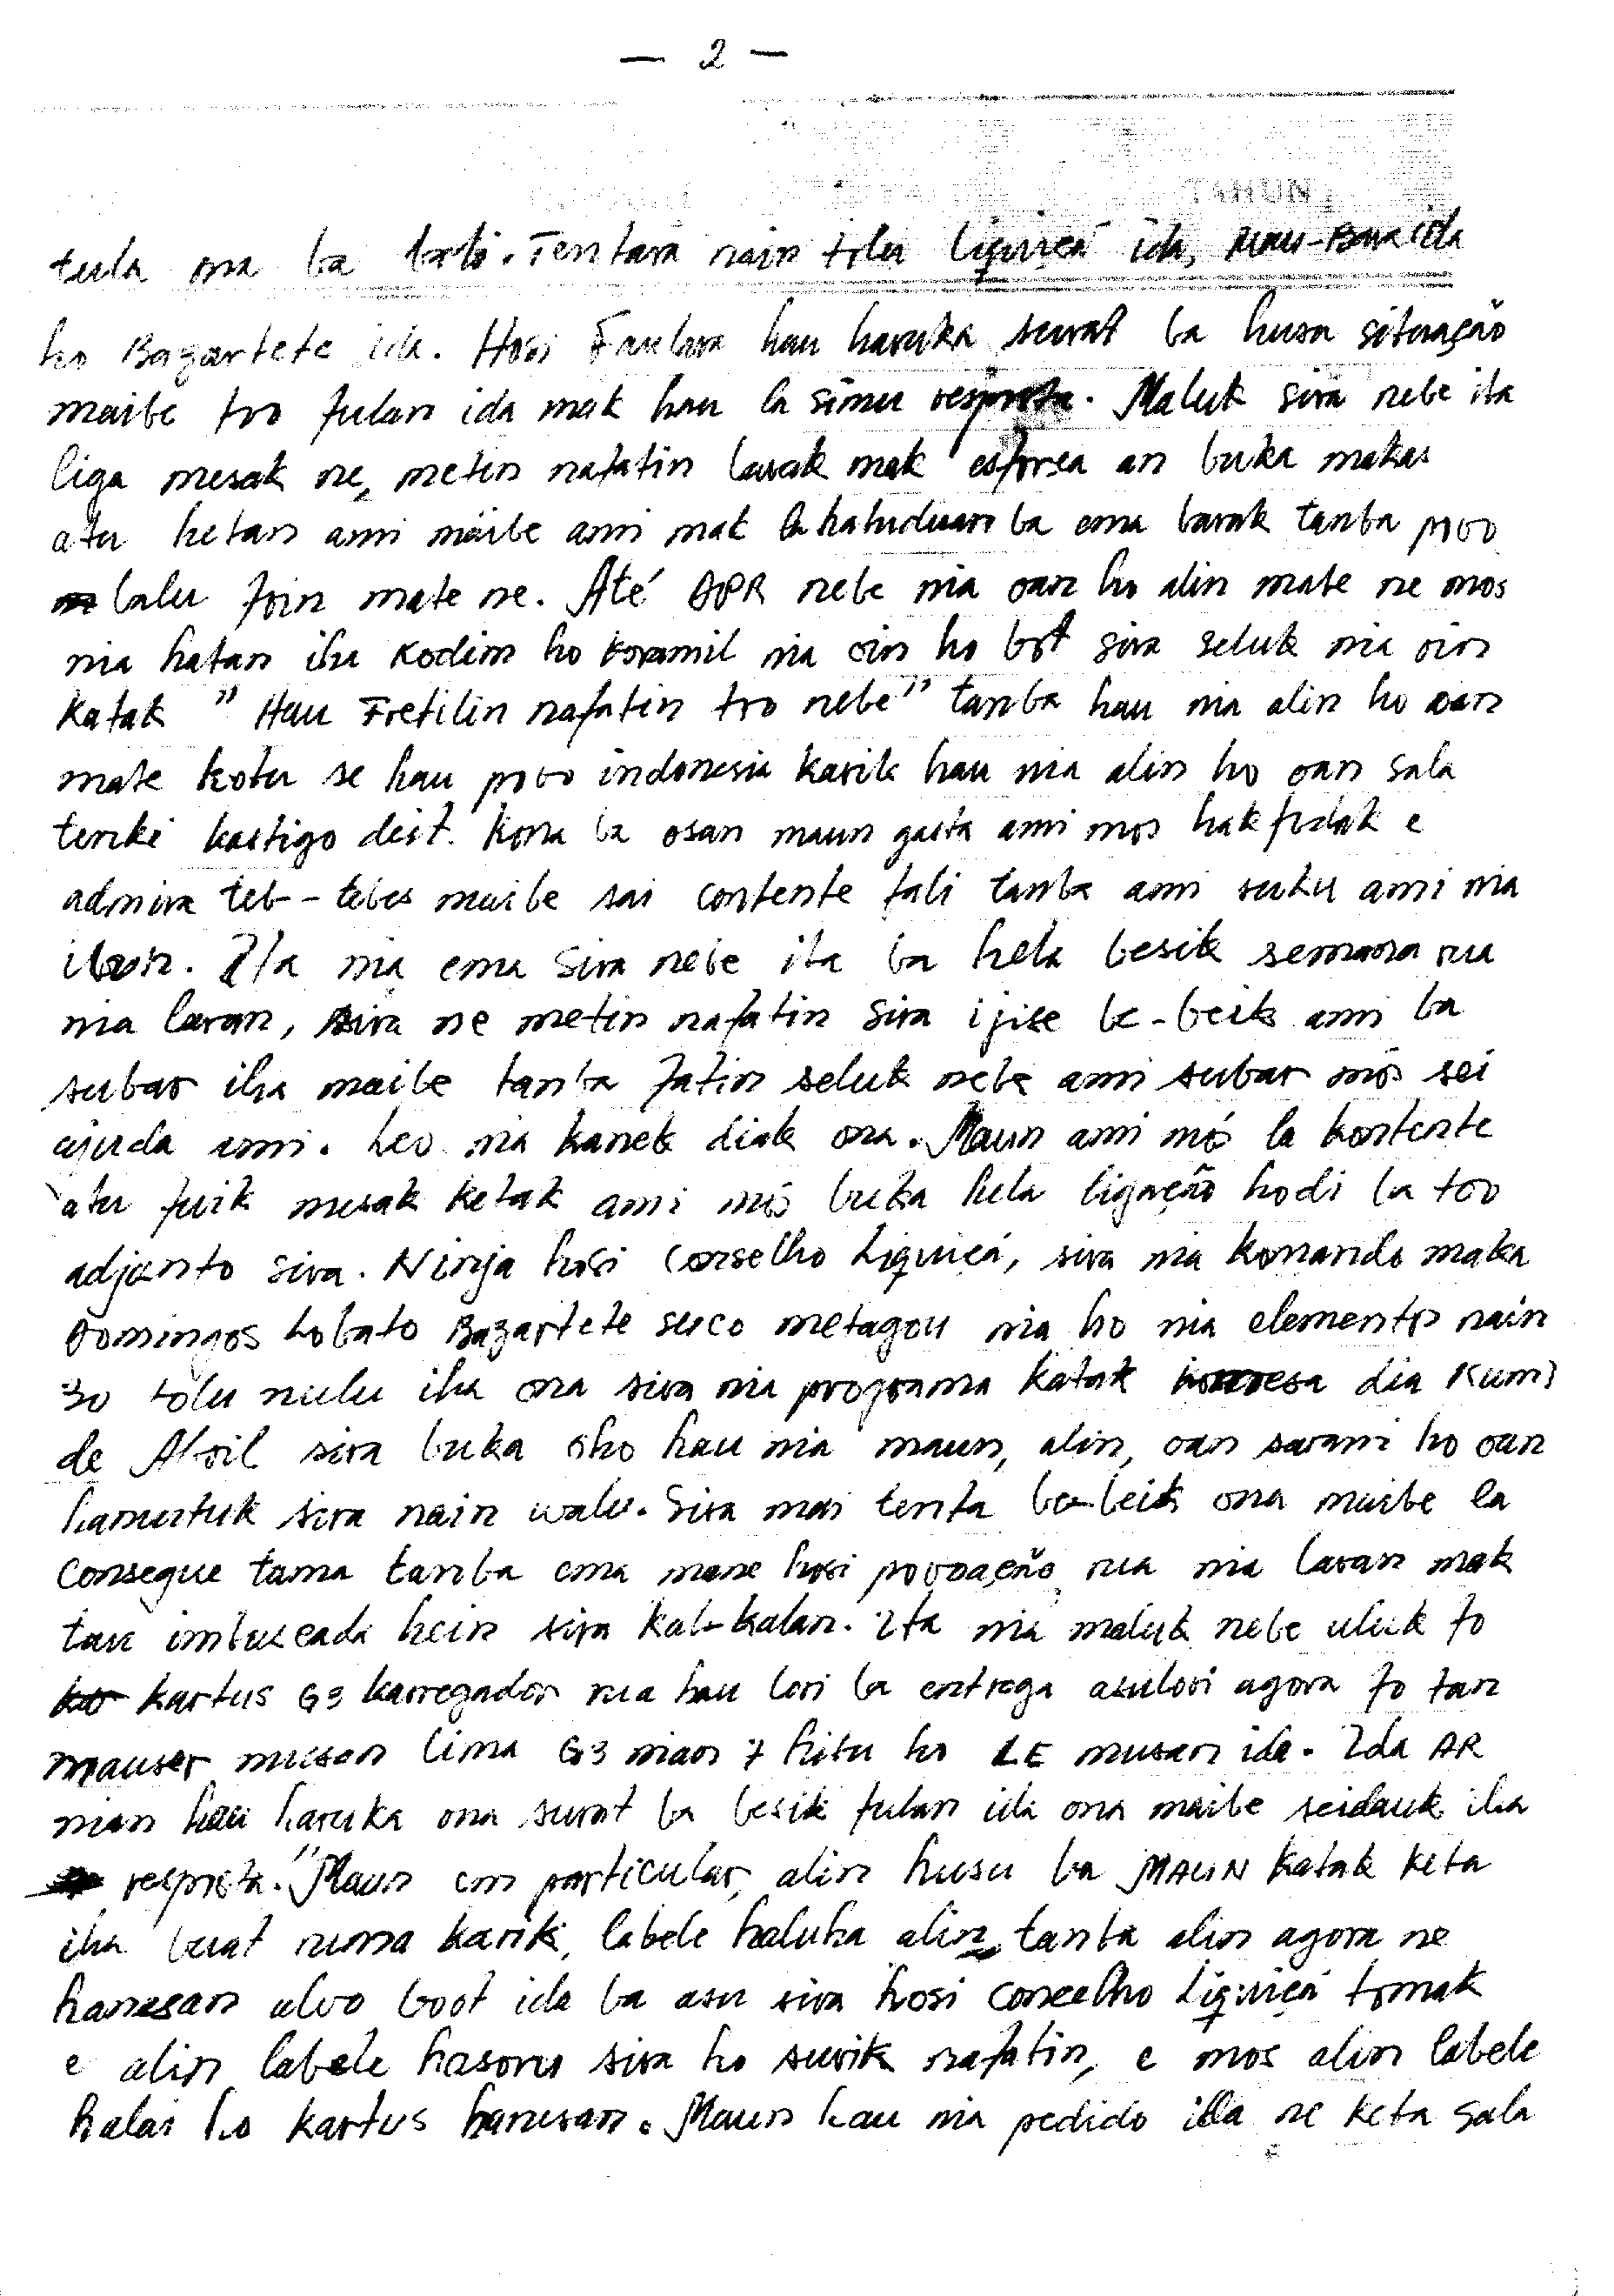 — 2 —
TAHUN
tula ona ba Tentara nain tolu Liquiçá ida, Mau-Bara ida
ho Bazartete ida. Hosi Faulara hau haruka surat ba husu situação
maibe too fulan ida mak hau la simu resposta. Maluk sira nebe ita
liga mesak ne, metin nafatin barak mak esforsa an buka makas
atu hetan ami maibe ami mak la hatuduan ba ema barak tanba povo
balu foin mate ne. Até APR nebe nia oan ho alin mate ne mos
nia hatan iha Kodim ho koramil nia oin ho bot sira seluk nia oin
katak "Hau Fretilin nafatin too nebe" tanba hau nia alin ho oan
mate kotu se hau povo indonesia karik hau nia alin ho oan sala
tenki kastigo deit. Kona ba osan maun gasta ami mos hakfodak e
admira teb-tebes maibe sai contente fali tanba ami suku ami nia
ibun. Ita nia ema sira nebe ita ba hela besik semana rua
nia laran, sira ne metin nafatin sira ijije be-beik ami ba
subar iha maibe tanba fatin seluk nebe ami subar mós sei
ajuda ami. Leo nia kanek diak ona. Maun ami mós la kontente
atu fuik mesak ketak ami mós buka hela ligação hodi ba too
adjunto sira. Ninja hosi Conselho Liquiçá, sira nia komando maka
Domingos Lobato Bazartete suco metagou nia ho nia elementos nain
30 tolu nulu iha ona sira nia programa katak dia
de Abril sira buka oho hau nia maun, alin, oan sarani ho oan
hamutuk sira nain walu. Sira mai tenta be-beik ona maibe la
consegue tama tanba ema mane hosi povoação rua nia laran mak
tau imbuscada hein sira kal-kalan. Ita nia maluk nebe uluk fo
kartus G3 karregador rua hau lori ba entrega asulori agora fo tan
mauser musan lima G3 nian 7 hitu ho LE musan ida. Ida AR
nian hau haruka ona surat ba besik fulan ida ona maibe seidauk iha
resposta." Maun em particular, alin husu ba MAUN katak keta
iha buat ruma karik, labele haluha alin, tanba alin agora ne
hanesan alvo boot ida ba asu sira hosi concelho Liquiçá tomak
e alin labele hasoru sira ho surik nafatin, e mos alin labele
halai ho kartus hanesan. Maun hau nia pedido ida ne keta sala